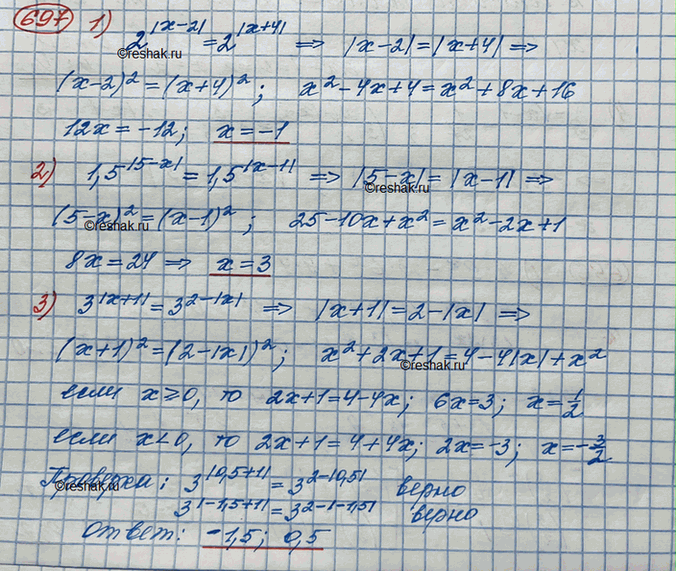 697 1) 2^|x-2| = 2^|x+4| ⇒ |x-2| = |x+4| ⇒
©reshak.ru
(x-2)² = (x+4)²; x²-4x+4 = x²+8x+16
12x = -12; x = -1
2) 1,5^|5-x| = 1,5^|x-1| ⇒ |5-x| = |x-1| ⇒
©reshak.ru
(5-x)² = (x-1)²; 25-10x+x² = x²-2x+1
©reshak.ru
8x = 24 ⇒ x = 3
3) 3^|x+1| = 3^2-|x| ⇒ |x+1| = 2-|x| ⇒
(x+1)² = (2-|x|)²; x²+2x+1 = 4-4|x|+x²
©reshak.ru
если x≥0, то 2x+1 = 4-4x; 6x = 3; x = 1/2
если x<0, то 2x+1 = 4+4x; 2x = -3; x = -3/2
Проверка: 3^|0,5+1| = 3^2-|0,5| верно
©reshak.ru
3^|-1,5+1| = 3^2-|-1,5| верно
Ответ: -1,5; 0,5